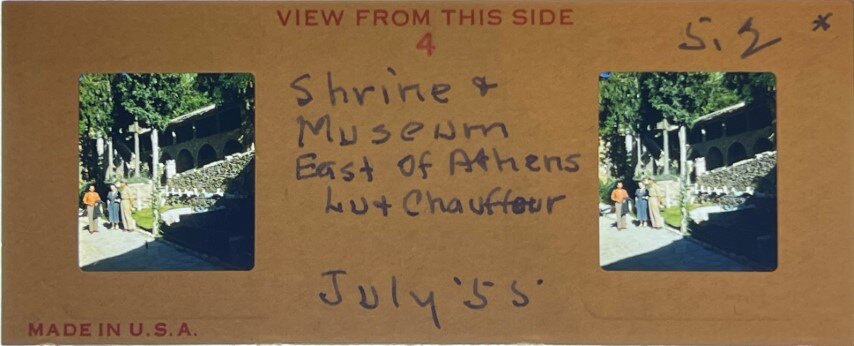 VIEW FROM THIS SIDE
4
5.2 *
Shrine +
Museum
East of Athens
Lu + Chauffeur
July '55
MADE IN U.S.A.